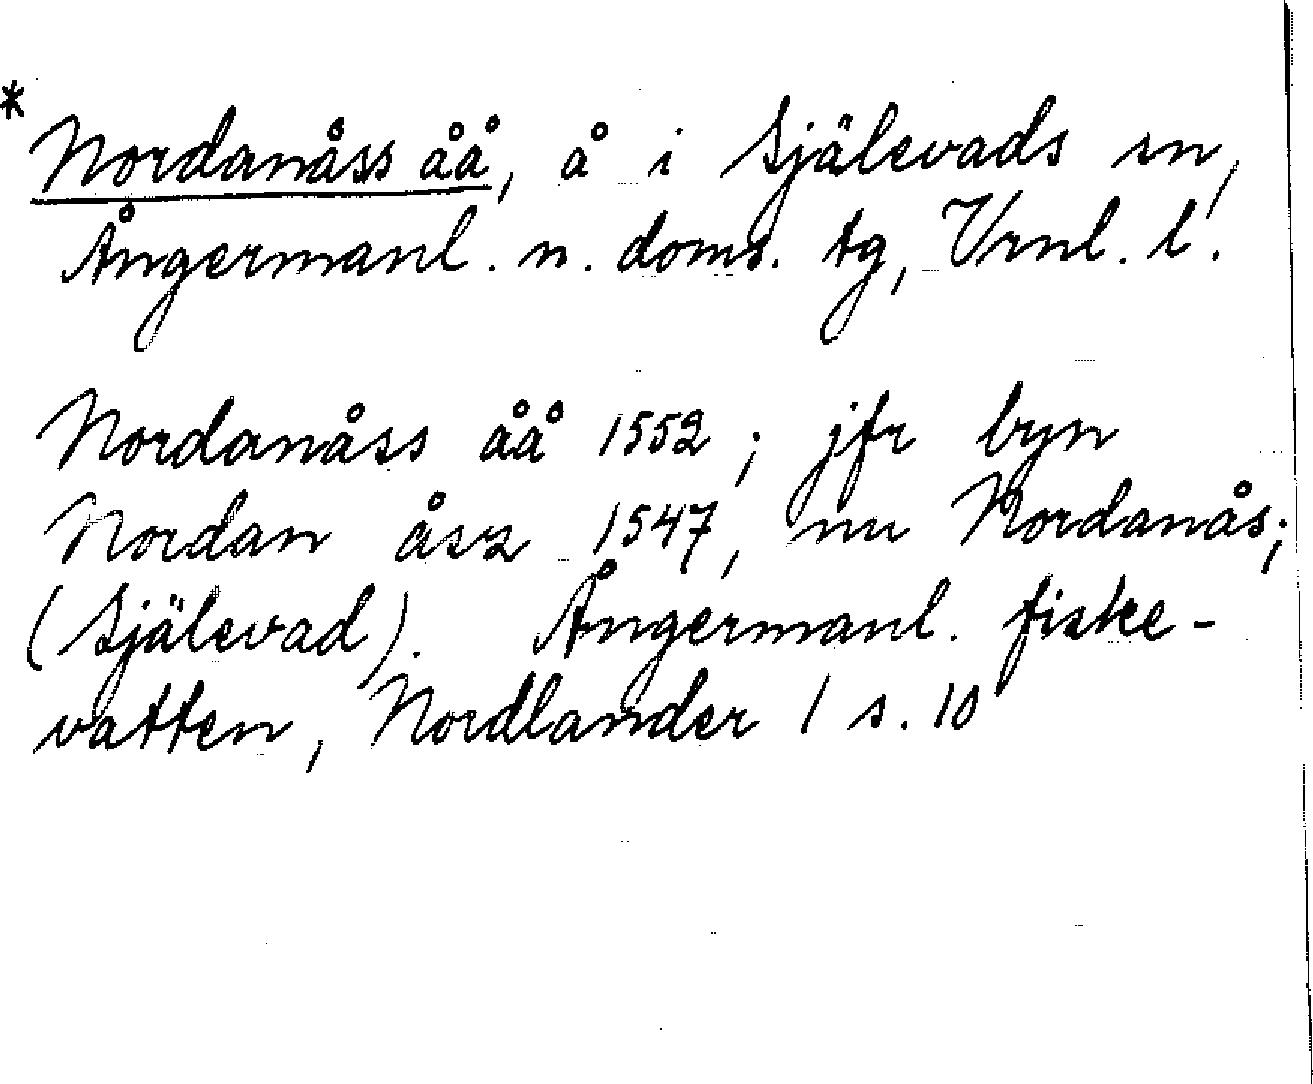 * Nordanåss åå, å i Själevads sn,
Ångermanl. n. doms. tg, Vrnl. l.
Nordanåss åå 1552; jfr byn
Nordan åsz 1547, nu Nordanås;
(Själevad). Ångermanl. fiske-
vatten, Nordlander 1 s. 10